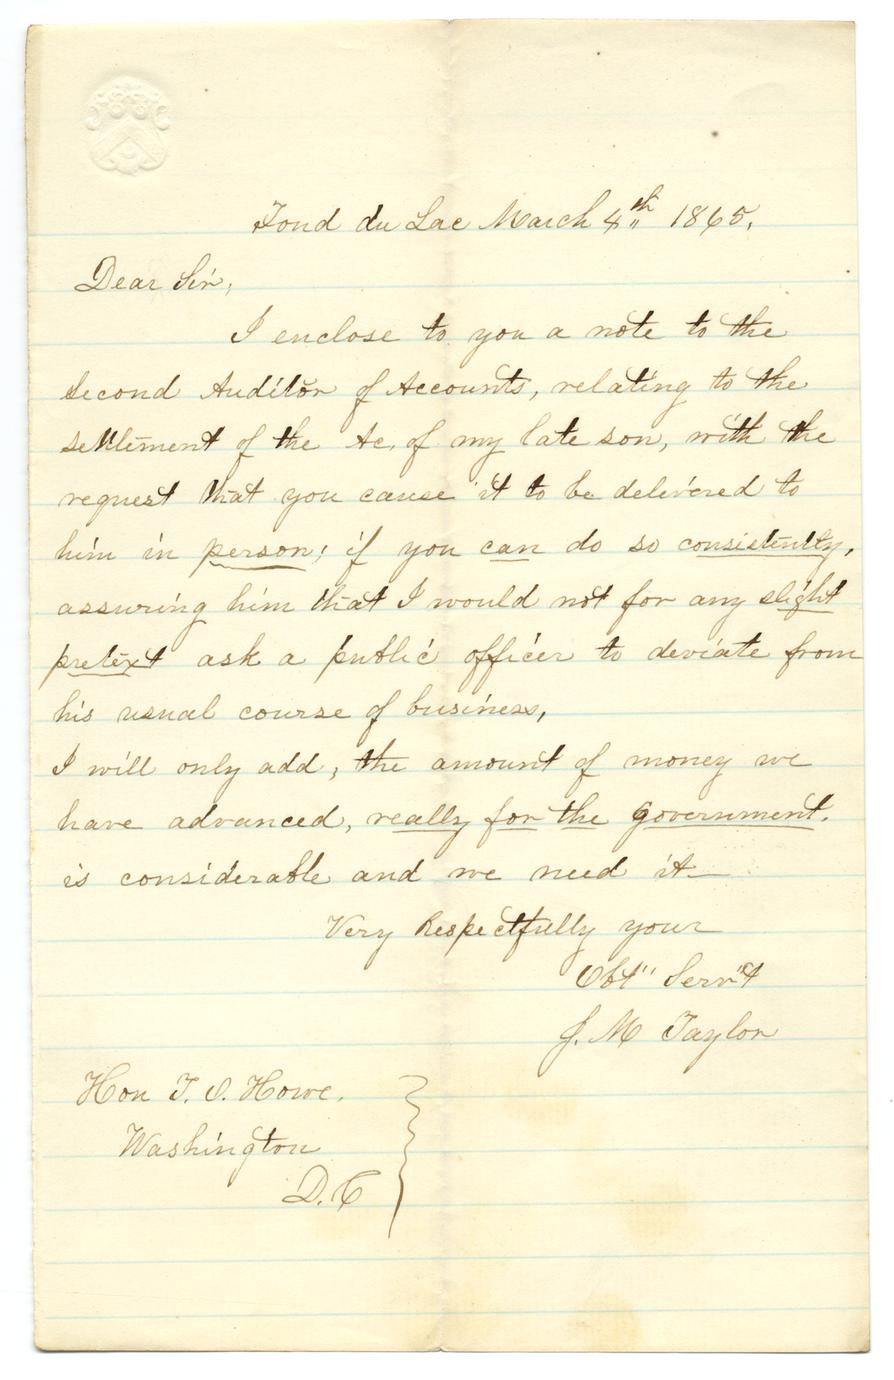 Fond du Lac March 4th 1865.
Dear Sir,
I enclose to you a note to the
Second Auditor of Accounts, relating to the
settlement of the Ac. of my late son, with the
request that you cause it to be delivered to
him in person; if you can do so consistently,
assuring him that I would not for any slight
pretext ask a public officer to deviate from
his usual course of business,
I will only add, the amount of money we
have advanced, really for the government.
is considerable and we need it—
Very Respectfully your
Obt" Serv't
J. M Taylor
Hon T. O. Howe.
Washington
D. C